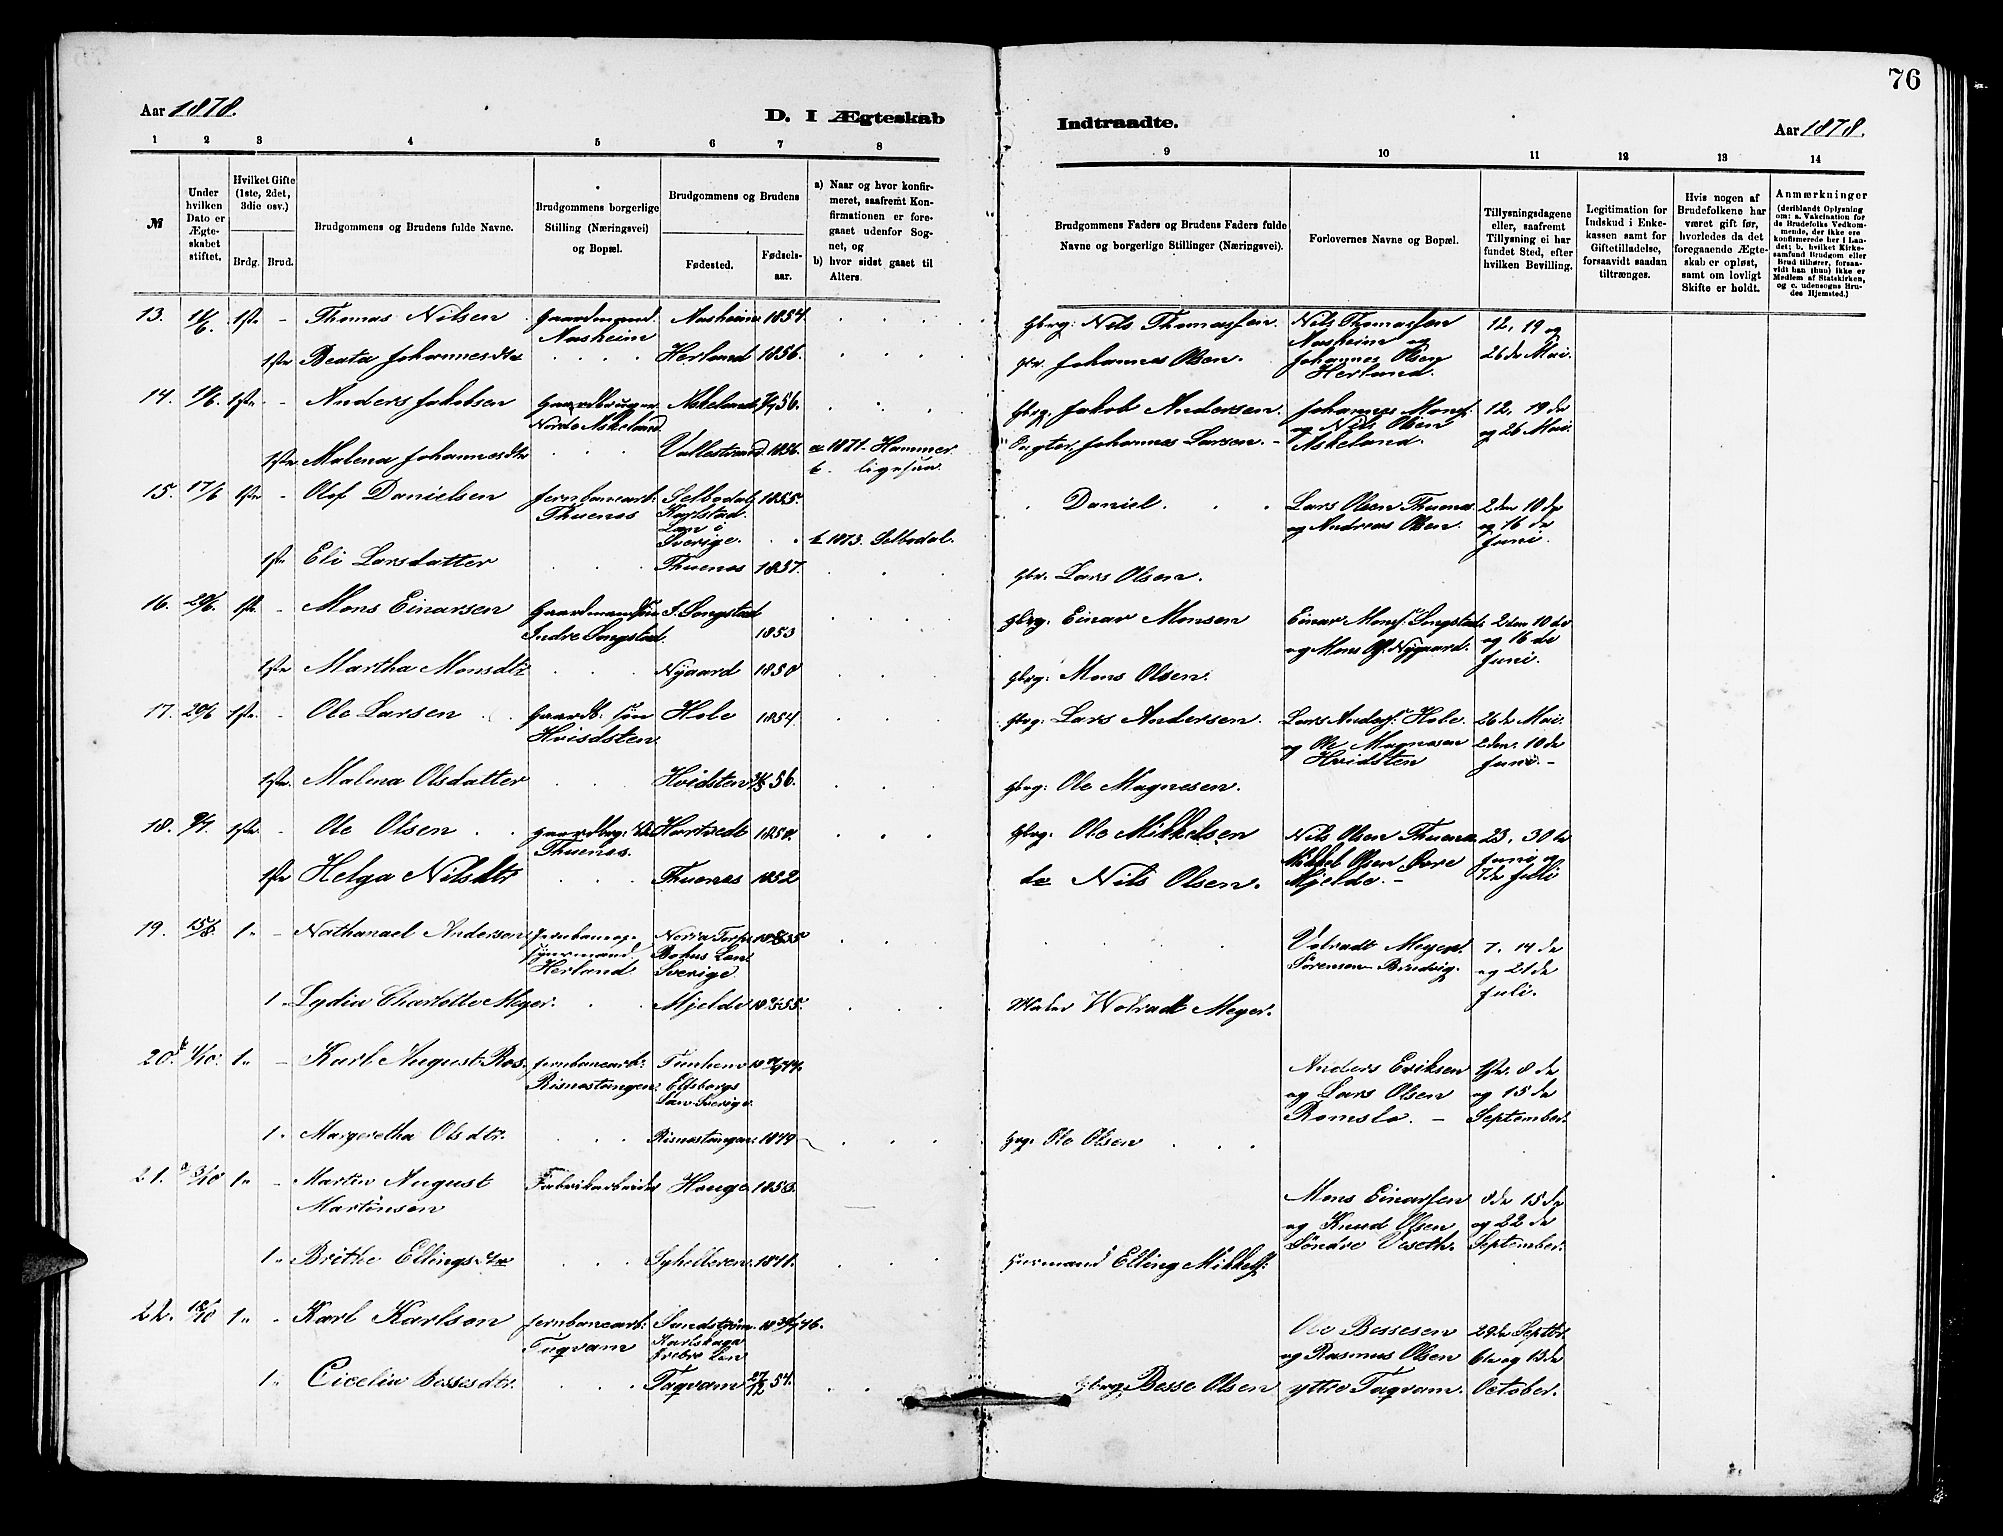 76
Aar 1878.
D. I Ægteskab
Indtraadte.
Aar 1878.
1 2 3 4 5 6 7 8
9 10 11 12 13 14
№
Under hvilken Dato er Ægteskabet stiftet.
Hvilket Gifte (1ste, 2det, 3die osv.)
Brdg. Brud.
Brudgommens og Brudens fulde Navne.
Brudgommens borgerlige Stilling (Næringsvei) og Bopæl.
Brudgommens og Brudens
Fødested.
Fødselsaar.
a) Naar og hvor konfirmeret, saafremt Konfirmationen er foregaaet udenfor Sognet, og
b) hvor sidst gaaet til Alters.
Brudgommens Faders og Brudens Faders fulde Navne og borgerlige Stillinger (Næringsvei).
Forlovernes Navne og Bopæl.
Tillysningsdagene eller, saafremt Tillysning ei har fundet Sted, efter hvilken Bevilling.
Legitimation for Indskud i Enkekassen samt for Giftetilladelse, forsaavidt saadan tiltrænges.
Hvis nogen af Brudefolkene har været gift før, hvorledes da det foregaaende Ægteskab er opløst, samt om lovligt Skifte er holdt.
Anmærkninger
(deriblandt Oplysning om: a. Vakcination for de Brudefolks Vedkommende, der ikke ere konfirmerede her i Landet; b. hvilket Kirkesamfund Brudgom eller Brud tilhører, forsaavidt han (hun) ikke er Medlem af Statskirken, og c. udensogns Brudes Hjemsted.)
13. 1ste - Thomas Nilsen Gaardmand Aasheim Aasheim 1854. Gbrg: Nils Thomassen. Nils Thomassen Aasheim og Johannes Olsen Herland. 12, 19 og 26de Mai.
1ste Beata Johannesdtr Herland 1856. Johannes Olsen.
14. 1ste - Anders Jakobsen Gaardbruger Nordre Askeland Askeland 56. Gbrg. Jakob Andersen. Johannes Mons. og Nils Olsen Askeland. 12, 19de og 26 Mai.
1ste Malena Johannesdtr Vallestrand 1856. a 1871. Hammer b. ligesaa. Johannes Larsen.
15. 17/6 1ste - Olof Danielsen Jernbanearb. Thuenes Selbodal, Karlstad Län i Sverige. 1855. b 1873. Selbodal. Daniel. Lars Olsen Thuenes og Andreas Olsen. 2den 10de og 16de Juni.
1ste Eli Larsdatter Thuenes 1857. Gbr. Lars Olsen.
16. 20/6. 1ste - Mons Einarsen Gaardmandssøn Indre Songstad. I. Songstad 1853 Gbrg: Einar Monsen Einar Mons. Songstad og Mons Ols. Nygaard. 2den 10de og 16de Juni.
1ste Martha Monsdtr Nygaard 1850 Gbrg: Mons Olsen.
17. 20/6 1ste - Ole Larsen Gaardb. søn Hvidsten Hole 1854. Gbrg: Lars Andersen. Lars Anders. Hole. og Ole Magnesen Hvidsten 26de Mai. 2den. 10de Juni.
1ste. Malena Olsdatter Hvidsten 56. Gbrg: Ole Magnesen.
18. 9/7. 1ste - Ole Olsen Gaardbrg: Thuenes. Hartvedt 1850. Gbrg. Ole Mikkelsen Nils Olsen Thuenes Mikkel Olsen Øvre Mjelde. 23, 30te Juni og 7de Juli
1ste Helga Nilsdtr Thuenes 1852 do Nils Olsen.
19. 15/8. 1" - Nathanael Anderson Jernbaneopsynsmand. Herland Norra Bohus Län. Sverige 1835 Volradt Meyer. Sörensen Bindvig. 7. 14de og 21de Juli.
1 Lydia Charlotte Meyer. Mjelde 55. Maler Wolradt Meyer.
20. 4/10. 1" - Karl August Ros. Jernbanearb. Risnestangen. Elfsborgs Län Sverige. Anders Eriksen og Lars Olsen Romslo. 1ste. 8de og 15de September.
1. Margeretha Olsdtr. Risnestangen Gbrg. Ole Olsen
21. 3/10 1" - Martin August Martinsen Fabrikarbeider Hauge 1853. Mons Einarsen og Knud Olsen Söndre Veseth. 8de 15de og 22de September.
1. Brithe Ellingsdtr Husmand Elling Mikkels.
22. 13/10 1" - Karl Karlson Jernbanearb: Taqvam Karlskoga Örebro Län Ole Bessesen og Rasmus Olsen ytre Taqvam. 29de Septbr. 6te og 13de October.
1. Cicelia Bessesdtr. Taqvam 27/12 54. Gbrg Besse Olsen